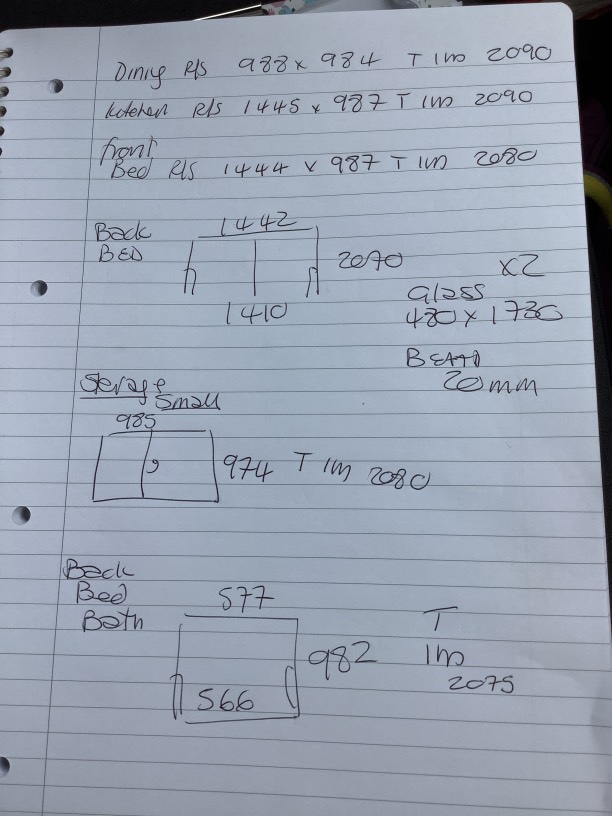 Dining R/S 988 x 984 T 1m 2090
Kitchen R/S 1445 x 987 T 1m 2090
front
Bed R/S 1444 x 987 T 1m 2080
Back
BED
1442
2070
1410
x2
Glass
480 x 1730
BEAD
20mm
Storage
Small
985
974 T 1m 2080
Back
Bed
Bath
577
982
566
T
1m
2075